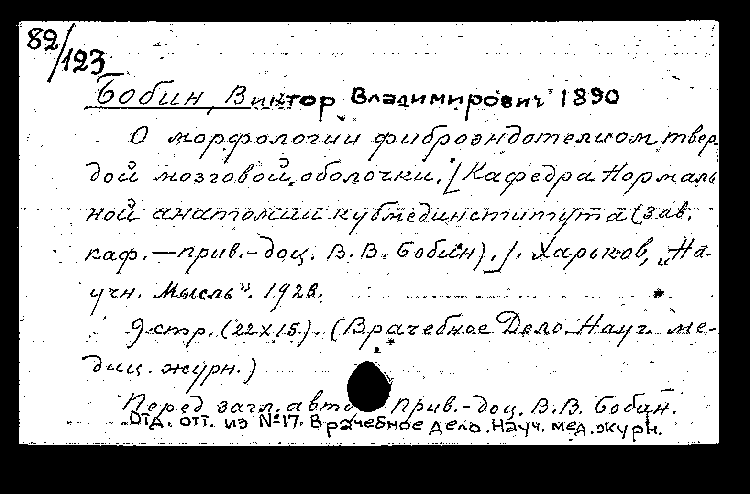 82/123
Бобин, Виктор Владимирович 1890
О морфологии фиброэндотелиом твер
дой мозговой оболочки. [Кафедра Нормаль
ной анатомии кубмединститута (зав.
каф. — прив.-доц. В. В. Бобин).]. Харьков, "На-
учн. Мысль". 1928.
9 стр. (22х15). (Врачебное Дело. Науч. ме-
диц. журн.)
Перед загл. авто Прив.-доц. В. В. Бобин.
Отд. отт. из №17. Врачебное дело. Науч. мед. журн.